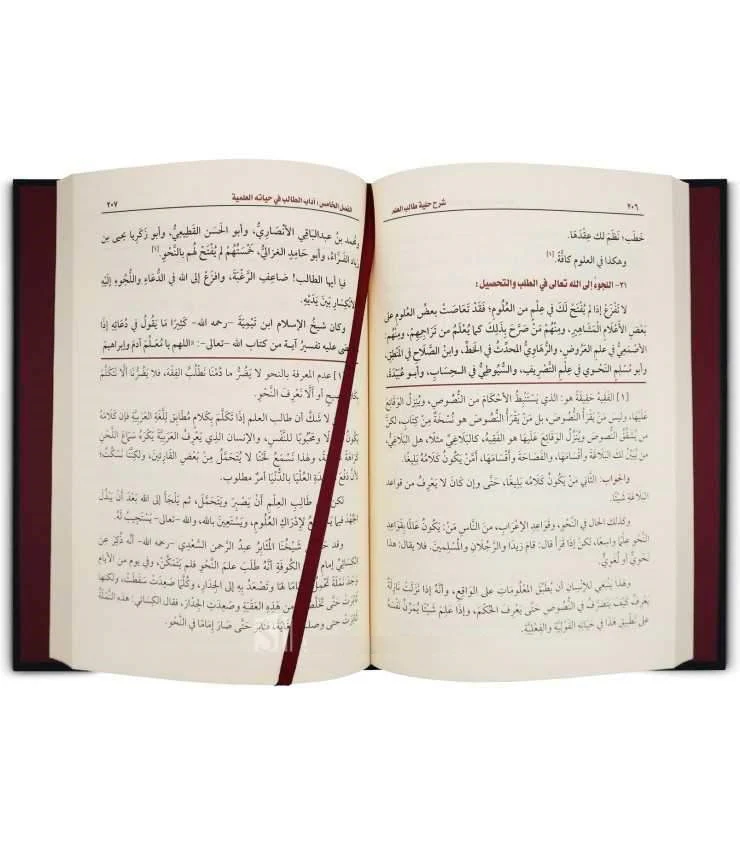 ٢٠٦
شرح حلية طالب العلم
خطب؛ نظم لك عِقْدَهَا.
وهكذا في العلوم كافَّةً.[١]
٢١- اللجوء إلى الله تعالى في الطلب والتحصيل:
لا تَفْزَعْ إذا لمْ يُفْتَحْ لَكَ فِي عِلْمٍ مِنَ العُلُومِ؛ فَقَدْ تَعَاصَتْ بعضُ العلومِ على
بَعْضِ الأَعْلامِ المَشَاهيرِ، ومِنْهُمْ مَنْ صَرَّحَ بِذَلكَ كما يُعْلَمُ من تراجِمِهِمْ، ومِنْهُم:
الأصْمَعِيُّ في علم العَرُوضِ، والرَّهَاوِيُّ المحدِّثُ في الخطِّ، وابنُ الصَّلاحِ في المنطِقِ،
وأبو مُسْلِمٍ النَّحْوِيُّ في عِلْمِ التَّصْريفِ، والسُّيُوطِيُّ في الحِسَابِ، وأبو عُبَيْدَةَ،
[١] الفقيهُ حقيقةً هو: الذي يَسْتَنْبِطُ الأحْكامَ مِن النُّصُوصِ، ويُنزِّلُ الوَقائعَ
عَلَيْهَا، وليسَ مَنْ يَقْرَأُ النُّصُوصَ، بل مَنْ يَقْرَأُ النُّصُوصَ هو نُسْخَةٌ مِنْ كِتَابٍ، لكنْ
مَن يُشَقِّقُ النُّصوصَ ويُنَزِّلُ الوقائعَ عَلَيْها هو الفقيهُ، كالبَلاغيِّ مثلًا، هلِ البَلاغيُّ:
مَن يُبَيِّنُ لكَ البَلاغَةَ وأقْسَامَها، والفَصَاحَةَ وأقْسَامَها، أَمَّنْ يَكُونُ كَلامُهُ بَلِيغًا.
والجواب: الثَّانِي مَنْ يَكُونُ كَلامُهُ بَلِيغًا، حَتَّى وإن كَانَ لا يَعْرِفُ من قواعدِ
البَلاغَةِ شيئًا.
وكذلك الحال في النَّحْوِ، وقَواعِدِ الإِعْرَابِ، مِنَ النَّاسِ مَنْ: يَكُونُ عَالمًا بِقَواعِدِ
النَّحْوِ عِلْمًا واسِعًا، لكنْ إذا قَرَأَ قالَ: قَامَ زَيدًا والرَّجُلانِ والمُسْلِمِينَ. فلا يقال: هذا
نَحويٌّ أو لُغويٌّ.
وهذا ينبغي للإنسان أن يُطَبِّقَ المعلوماتِ على الوَاقِعِ، وأنَّه إذا نزلَتْ نازِلةٌ
يَعْرِفُ كيفَ يتصرَّفُ في النُّصُوصِ حتَّى يَعْرِفَ الحُكْمَ، وإذا عَلِمَ شَيْئًا يُمَرِّنُ نَفْسَهُ
على تَطْبيقِ هذا في حياتِهِ القَوْلِيَّةِ والفِعْلِيَّةِ.
الفصل الخامس: آداب الطالب في حياته العلمية
٢٠٧
ومحمد بنُ عبدالباقي الأنْصَارِيُّ، وأبو الحَسَنِ القَطِيعِيُّ، وأبو زَكَرِيا يحيى بن
زياد الفَرَّاءُ، وأبو حامِدٍ الغزاليُّ، خَمْسَتُهُمْ لم يُفْتَحْ لهم بالنَّحْوِ.[١]
فيا أيها الطالب! ضَاعِفِ الرَّغْبَةَ، وافزَعْ إلى الله في الدُّعَاءِ واللُّجُوءِ إليهِ
والانْكِسَارِ بَيْنَ يَدَيْهِ.
وكان شيخُ الإسلام ابن تَيْمِيَّةَ -رحمه الله- كَثيرًا مَا يَقُولُ في دُعَائِهِ إِذَا
عليه تفسيرُ آية من كتاب الله -تعالى-: «اللهم يا مُعَلِّمَ آدم وإبراهيم
[١] عدم المعرفة بالنحو لا يَضُرُّ ما دُمْنَا نَطْلُبُ الفِقْهَ، فلا يَضُرُّنا ألَّا نَتَكَلَّمَ
أو ألَّا نَعْرِفَ النَّحْوَ.
لا شَكَّ أن طالب العلم إذا تَكَلَّمَ بِكَلامٍ مُطابِقٍ لِلُّغَةِ العَرَبيَّةِ فإن كَلامَهُ
يَكُونُ ومحبوبًا للنَّفْسِ، والإنسان الذي يَعْرِفُ العَرَبِيَّةَ يَكْرَهُ سَمَاعَ اللَّحْنِ
وهذا نَسْمَعُ لحنًا لا يُتَحَمَّلُ مِنْ بَعْضِ القَارِئينَ، ولكِنَّنا نَسْكُتُ؛
اللغةِ العُلْيا بالدُّنْيا أمرٌ مطلوب.
لكن طَالِبَ العِلْمِ أَنْ يَصْبِرَ ويَتَحَمَّلَ، ثم يَلْجَأَ إلى الله بَعْدَ أنْ يَبْذُلَ
لإدْرَاكِ العُلُومِ، ويَسْتَعينَ بالله، والله -تعالى- يَسْتَجيبُ لَهُ.
وقد شيْخُنا المُثَابِرُ عبدُ الرحمن السَّعْدِيُّ -رحمه الله- أنَّه ذُكِرَ عن
الكِسَائيِّ إمامِ الكُوفَةِ أَنَّهُ طَلَبَ عِلمَ النَّحْوِ فلم يَتَمَكَّنْ، وفي يوم من الأيام
وَجَدَ نَمْلَةً تَحْمِلُ لها وتَصْعَدُ به إلى الجِدَارِ، وكُلَّما صَعِدَتْ سَقَطَتْ، ولكنها
ثَابَرَتْ حتى من هَذِهِ العَقَبَةِ وصَعِدَتِ الجِدَارَ، فقال الكِسَائيُّ: هذه النَّمْلَةُ
ثَابَرَتْ حتى فَثَابَرَ حَتَّى صَارَ إمامًا في النَّحْوِ.